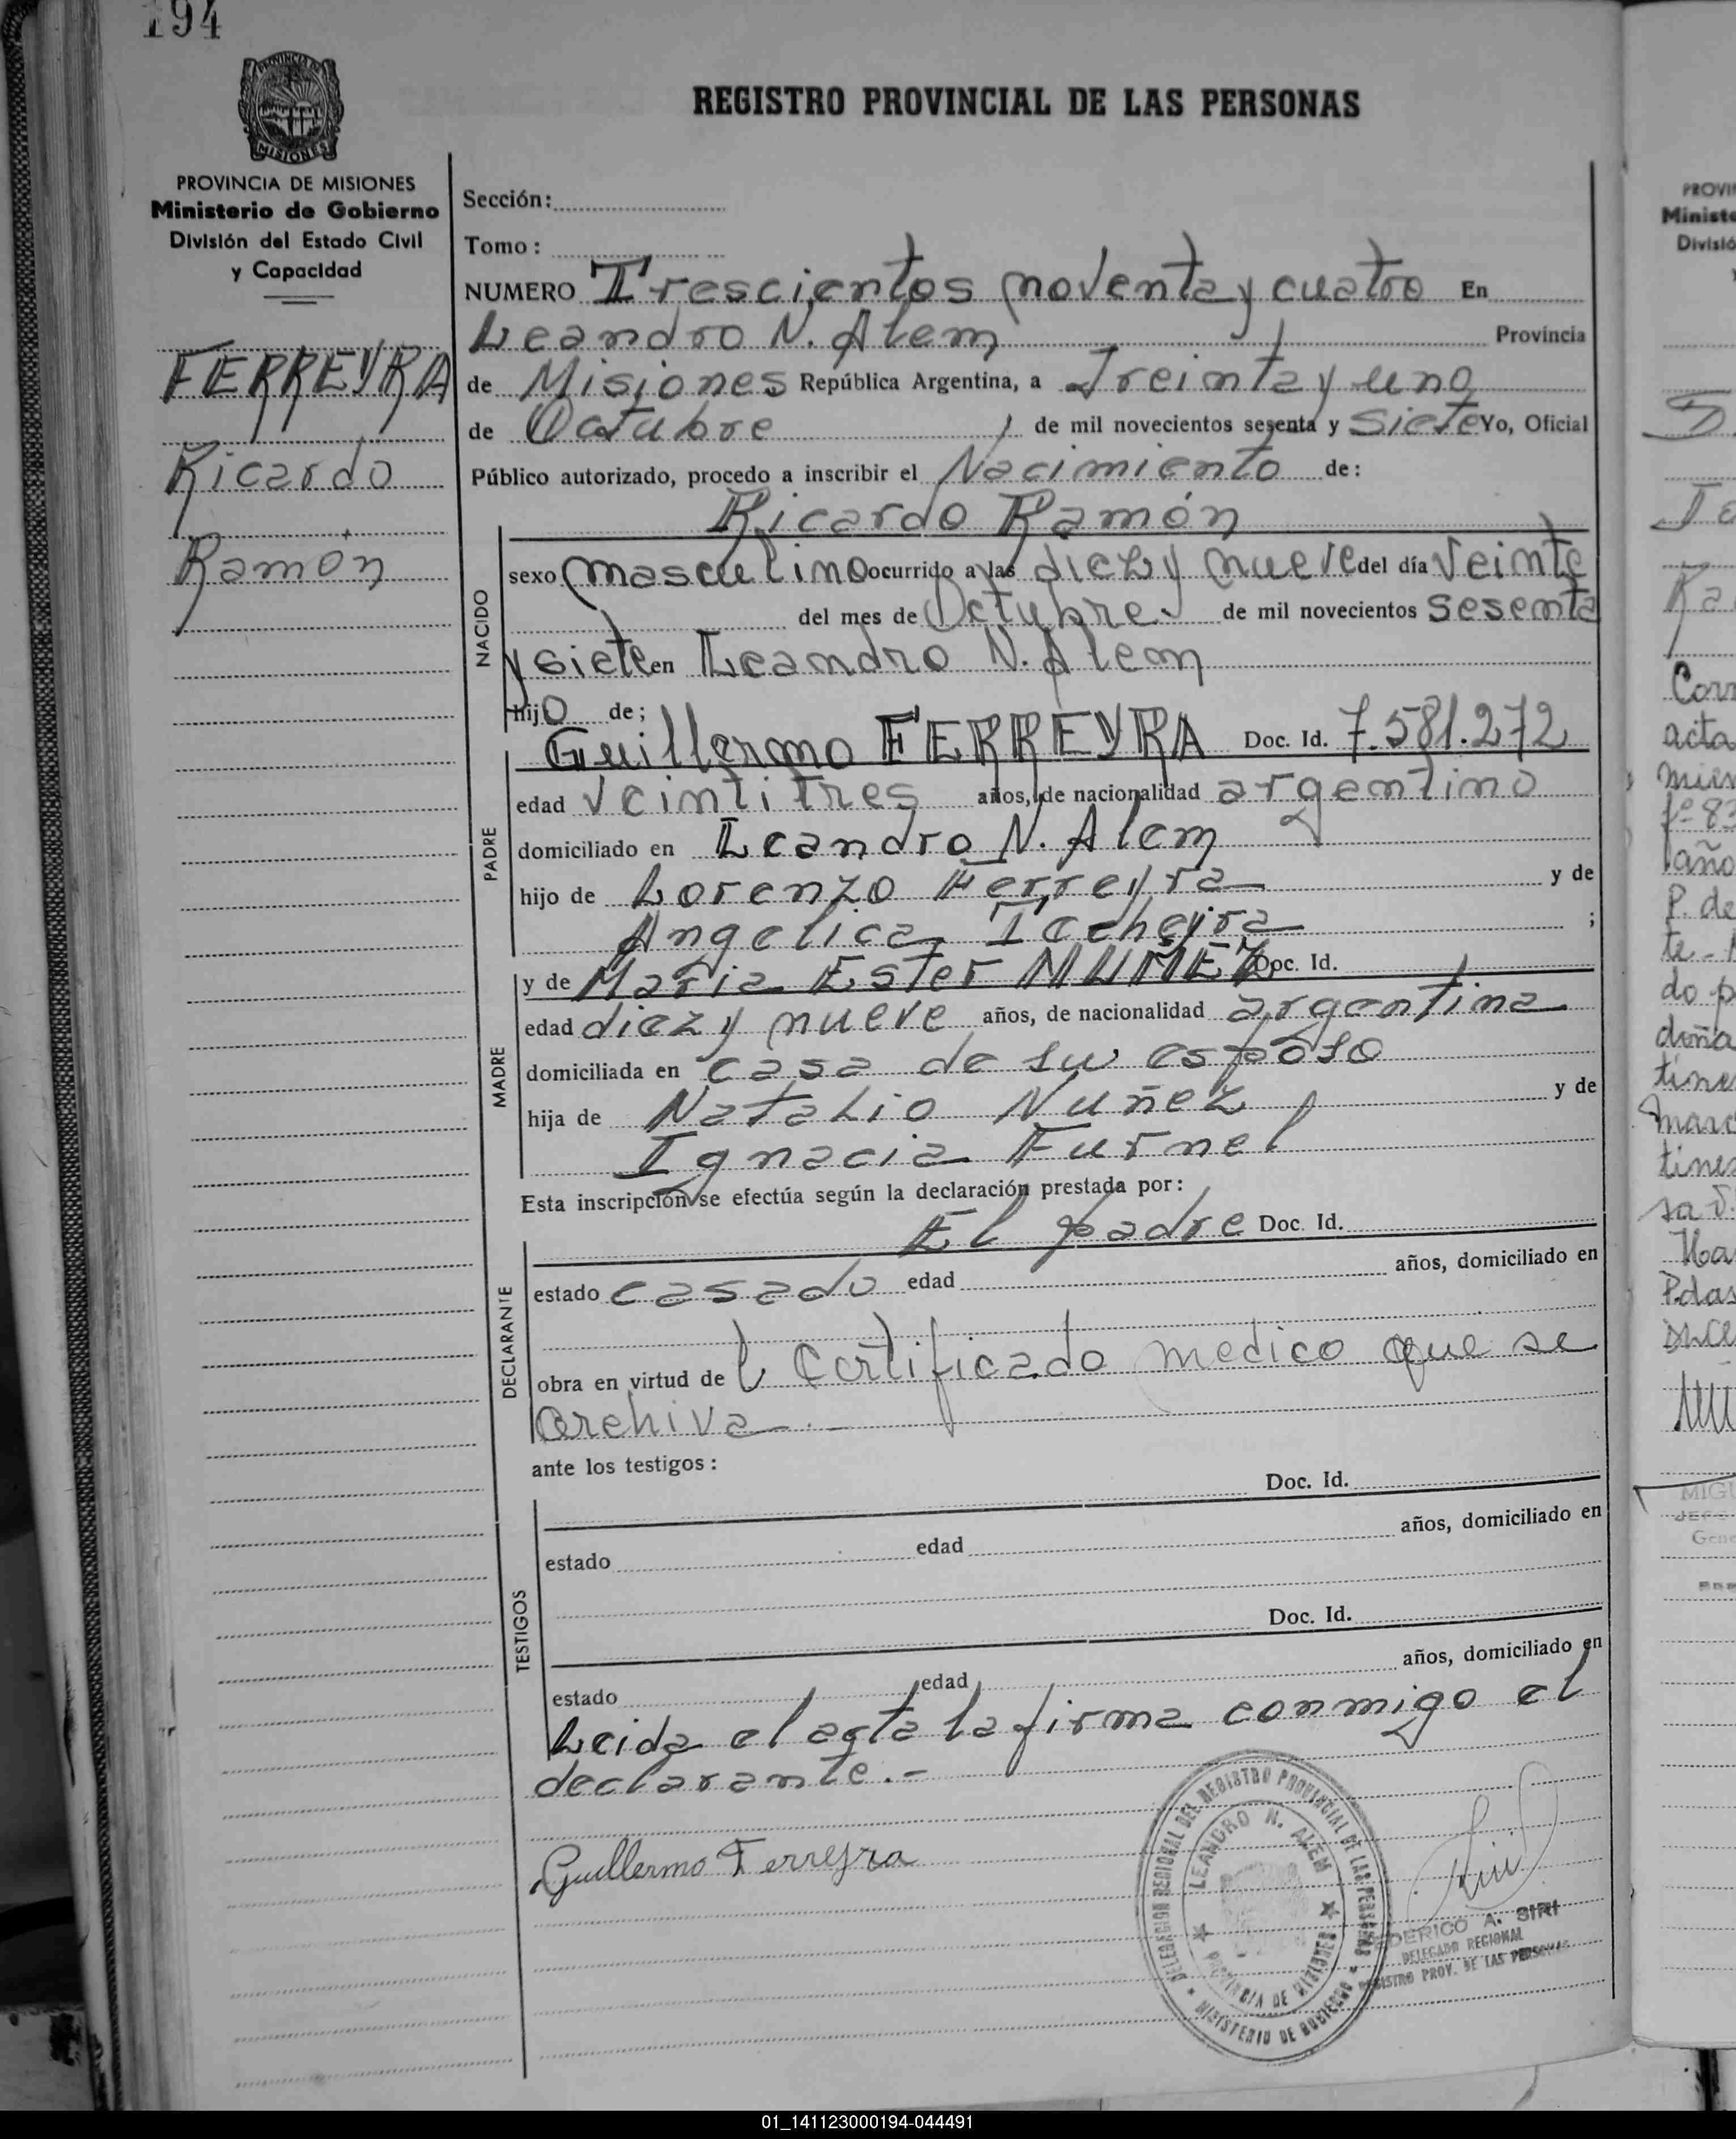 194
PROVINCIA DE MISIONES
Ministerio de Gobierno
División del Estado Civil
y Capacidad
FERREYRA
Ricardo
Ramón
REGISTRO PROVINCIAL DE LAS PERSONAS
Sección:
Tomo:
NUMERO Trescientos noventa y cuatro En
Leandro N. Alem Provincia
de Misiones República Argentina, a Treinta y uno
de Octubre de mil novecientos sesenta y Siete Yo, Oficial
Público autorizado, procedo a inscribir el Nacimiento de:
Ricardo Ramón
NACIDO
sexo masculino ocurrido a las diez y nueve del día Veinte
del mes de Octubre de mil novecientos sesenta
y siete en Leandro N. Alem
hijo de;
PADRE
Guillermo FERREYRA Doc. Id. 7.581.272
edad veintitres años, de nacionalidad argentino
domiciliado en Leandro N. Alem
hijo de Lorenzo Ferreyra y de
Angelica Techeira ;
MADRE
y de Maria Ester NUÑEZ Doc. Id.
edad diez y nueve años, de nacionalidad argentina
domiciliada en casa de su esposo
hija de Natalio Nuñez y de
Ignacia Furnel
Esta inscripción se efectúa según la declaración prestada por:
DECLARANTE
El padre Doc. Id.
estado casado edad años, domiciliado en
obra en virtud del Certificado medico que se
archiva.-
ante los testigos:
TESTIGOS
Doc. Id.
estado edad años, domiciliado en
Doc. Id.
estado edad años, domiciliado en
Leida el acta la firma conmigo el
declarante.-
Guillermo Ferreyra
DELEGACION REGIONAL DEL REGISTRO PROVINCIAL DE LAS PERSONAS
LEANDRO N. ALEM
PROVINCIA DE MISIONES
MINISTERIO DE GOBIERNO
FEDERICO A. SIRI
DELEGADO REGIONAL
REGISTRO PROV. DE LAS PERSONAS
01_141123000194-044491